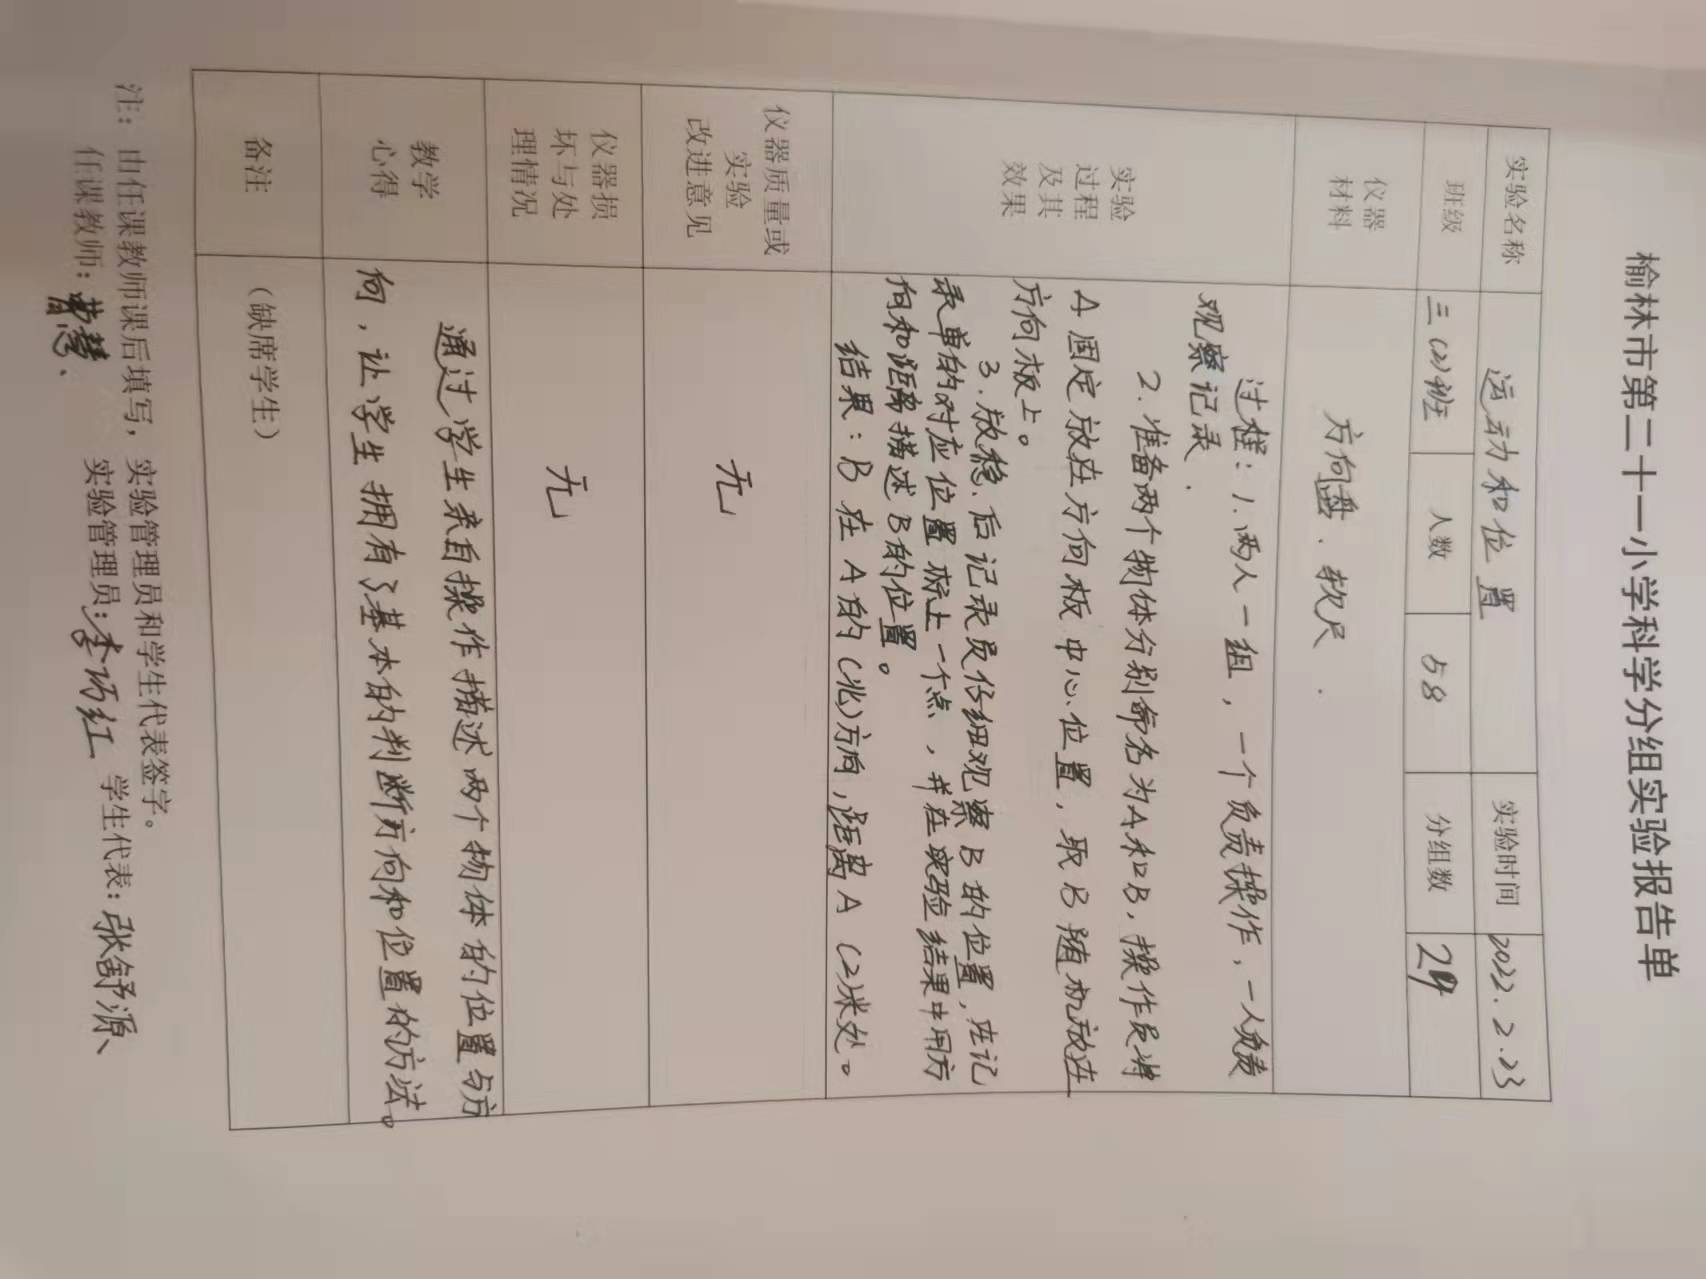 榆林市第二十一小学科学分组实验报告单
实验名称 运动和位置 实验时间 2022.2.23
班级 三(2)班 人数 58 分组数 24
仪器
材料
方向盘、软尺.
实验
过程
及其
效果
过程：1.两人一组，一个负责操作，一人负责
观察记录.
2.准备两个物体分别命名为A和B，操作员将
A固定放在方向板中心位置，取B随机放在
方向板上。
3.放稳后记录员仔细观察B的位置，在记
录单的对应位置标上一个点，并在实验结果中用方
向和距离描述B的位置。
结果：B在A的(北)方向，距离A(2)米处。
仪器质量或
实验
改进意见
无
仪器损
坏与处
理情况
无
教学
心得
通过学生亲自操作描述两个物体的位置与方
向，让学生拥有了基本的判断方向和位置的方法。
备注
（缺席学生）
注：由任课教师课后填写，实验管理员和学生代表签字。
任课教师：曹慧、 实验管理员：李 红 学生代表：张舒源、